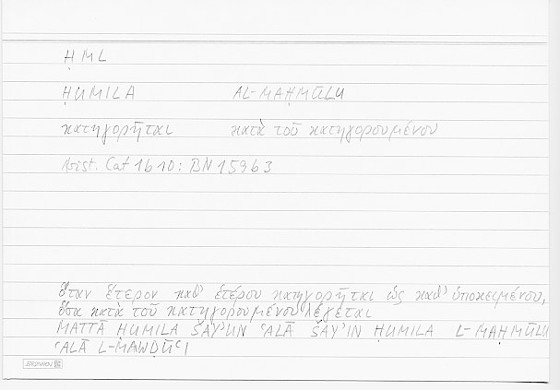 ḤML
ḤUMILA AL-MAḤMŪLU
κατηγορῆται κατὰ τοῦ κατηγορουμένου
Arist. Cat 1b10: BN 15963
ὅταν ἕτερον καθ' ἑτέρου κατηγορῆται ὡς καθ' ὑποκειμένου,
ὅσα κατὰ τοῦ κατηγορουμένου λέγεται
MATTĀ ḤUMILA ŠAY'UN ʿALĀ ŠAY'IN ḤUMILA L-MAḤMŪLI
ʿALĀ L-MAWḌŪʿI